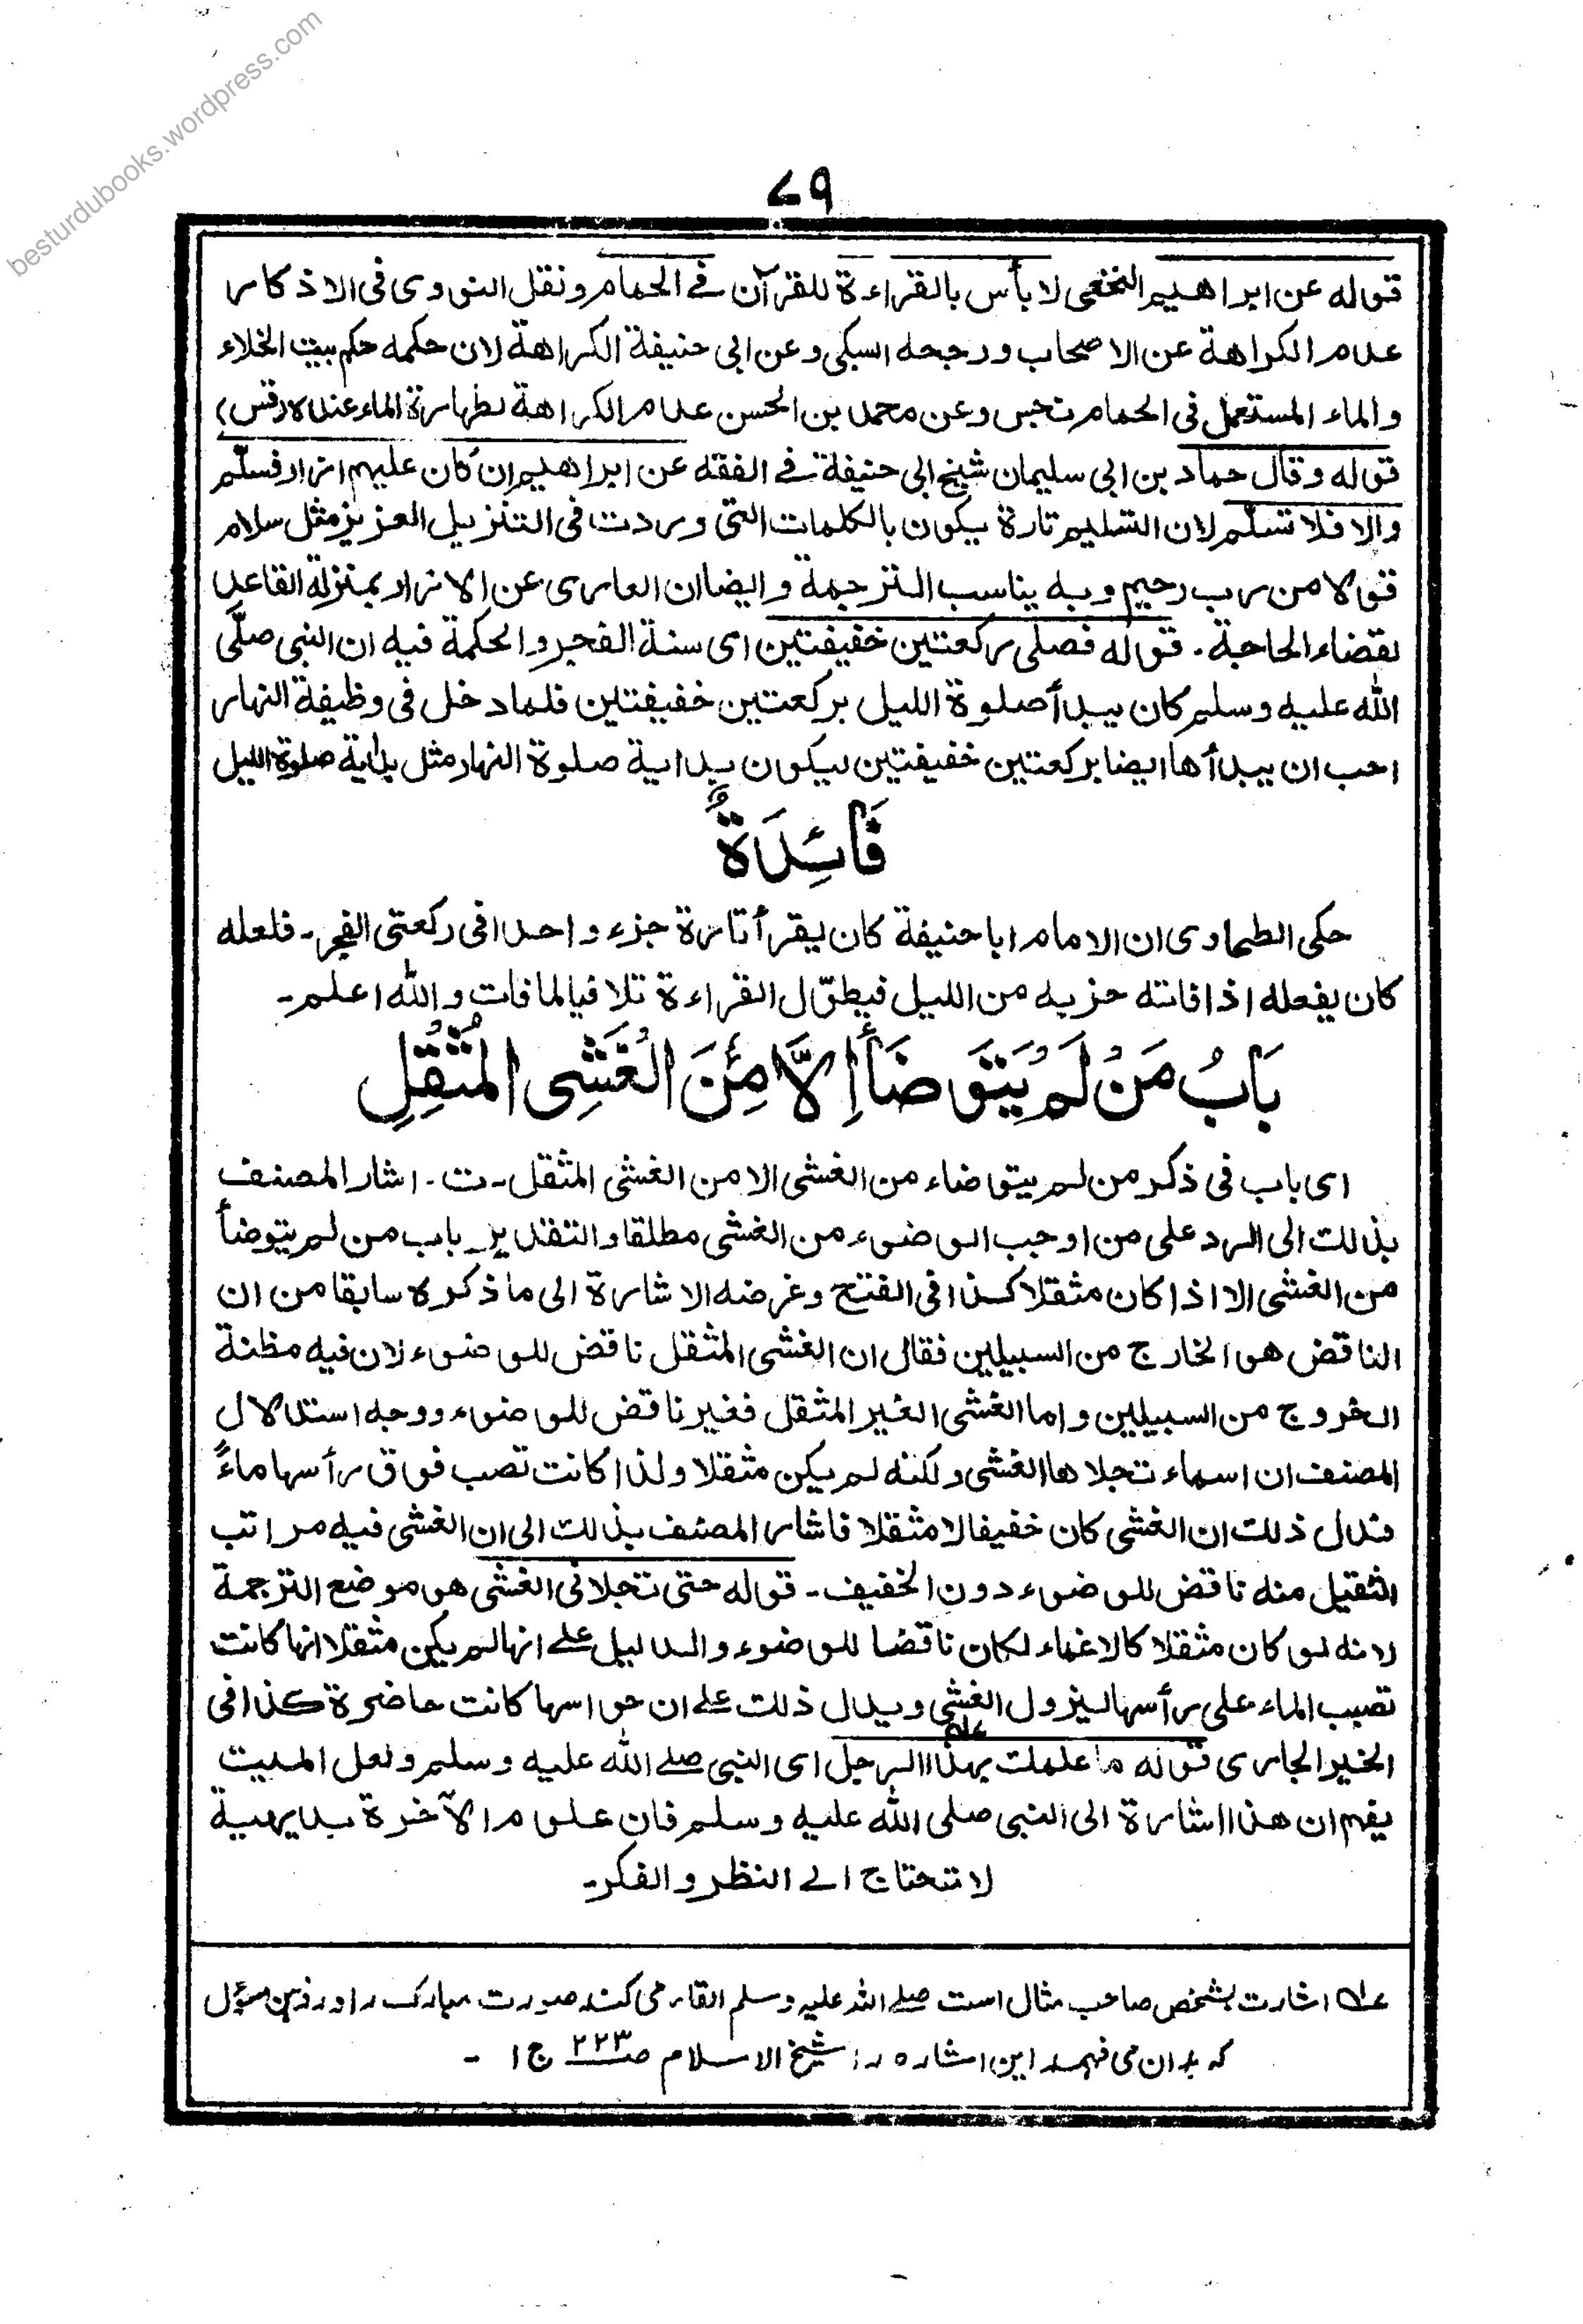 besturdubooks.wordpress.com
٧٩
قوله عن ابراهيم النخعى لا بأس بالقراءة للقرآن فے الحمام ونقل النووى فى الاذكار
عدم الكراهة عن الاصحاب ورجحه السبكى وعن ابى حنيفة الكراهة لان حكمه حكم بيت الخلاء
والماء المستعمل فى الحمام نجس وعن محمد بن الحسن عدم الكراهة لطهارة الماء عنده (قس)
قوله وقال حماد بن ابى سليمان شيخ ابى حنيفة فے الفقه عن ابراهيم ان كان عليهم ازار فسلّم
والا فلا تسلّم لان التسليم تارة يكون بالكلمات التى وردت فى التنزيل العزيز مثل سلام
قولا من رب رحيم وبه يناسب الترجمة وايضا ان العارى عن الازار بمنزلة القاعد
لقضاء الحاجة. قوله فصلى ركعتين خفيفتين اى سنة الفجر والحكمة فيه ان النبى صلّى
الله عليه وسلم كان يبدأ صلوة الليل بركعتين خفيفتين فلما دخل فى وظيفة النهار
احب ان يبدأها ايضا بركعتين خفيفتين ليكون بداية صلوة النهار مثل بداية صلوة الليل
فَائِدَةٌ
حكى الطحاوى ان الامام ابا حنيفة كان يقرأ تارة جزء واحدا فى ركعتى الفجر۔ فلعله
كان يفعله اذا فاته حزبه من الليل فيطوّل القراءة تلافيا لما فات والله اعلم۔
بَابُ مَنْ لَمْ يَتَوَضَأْ إِلَّا مِنَ الْغَشِى الْمُثْقِلِ
اى باب فى ذكر من لم يتوضاء من الغشى الا من الغشى المثقل۔ ت۔ اشار المصنف
بذلك الى الرد على من اوجب الوضوء من الغشى مطلقا والتقدير باب من لم يتوضأ
من الغشى الا اذا كان مثقلا كذا فى الفتح وغرضه الاشارة الى ما ذكره سابقا من ان
الناقض هو الخارج من السبيلين فقال ان الغشى المثقل ناقض للوضوء لان فيه مظنة
الخروج من السبيلين واما الغشى الغير المثقل فغير ناقض للوضوء ووجه استدلال
المصنف ان اسماء تجلاها الغشى ولكنه لم يكن مثقلا ولذا كانت تصب فوق رأسها ماءً
فدل ذلك ان الغشى كان خفيفا لا مثقلا فاشار المصنف بذلك الى ان الغشى فيه مراتب
الثقيل منه ناقض للوضوء دون الخفيف۔ قوله حتى تجلانى الغشى هو موضع الترجمة
لانه لو كان مثقلا كالاغماء لكان ناقضا للوضوء والدليل علے انها لم يكن مثقلا انها كانت
تصبب الماء على رأسها ليزول الغشى ويدل ذلك علے ان حواسها كانت حاضرة كذا فى
الخير الجارى قوله ما علمك بهذا الرجل اى النبى صلے الله عليه وسلم ولعل الميت
يفهم ان هذا اشارة الى النبى صلى الله عليه وسلم فان علوم الآخرة بديهية
لا تحتاج الے النظر والفكر۔
عہ اشارت بشخص صاحب مثال است صلے اللہ علیہ وسلم القاء می کند صورت مبارک را در ذہن مسؤل
کہ بدان می فہمد این اشارہ را شیخ الاسلام صـ ٢٢٣ ج ١ ۔